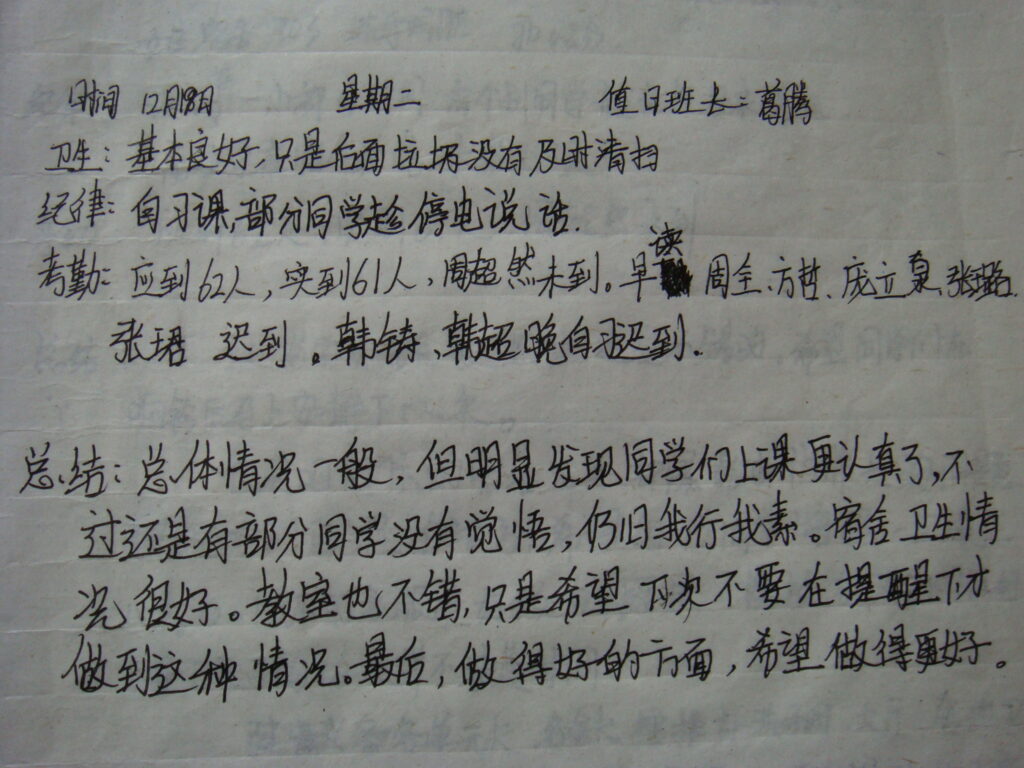 时间 12月18日 星期二 值日班长：葛腾
卫生：基本良好，只是后面垃圾没有及时清扫
纪律：自习课，部分同学趁停电说话.
考勤：应到62人，实到61人，周超然未到。早读 周全、方哲、庞立泉、张璐、
张珺 迟到。韩铸、韩超晚自习迟到.
总结：总体情况一般，但明显发现同学们上课更认真了，不
过还是有部分同学没有觉悟，仍旧我行我素。宿舍卫生情
况很好。教室也不错，只是希望下次不要在提醒下才
做到这种情况。最后，做得好的方面，希望做得更好。